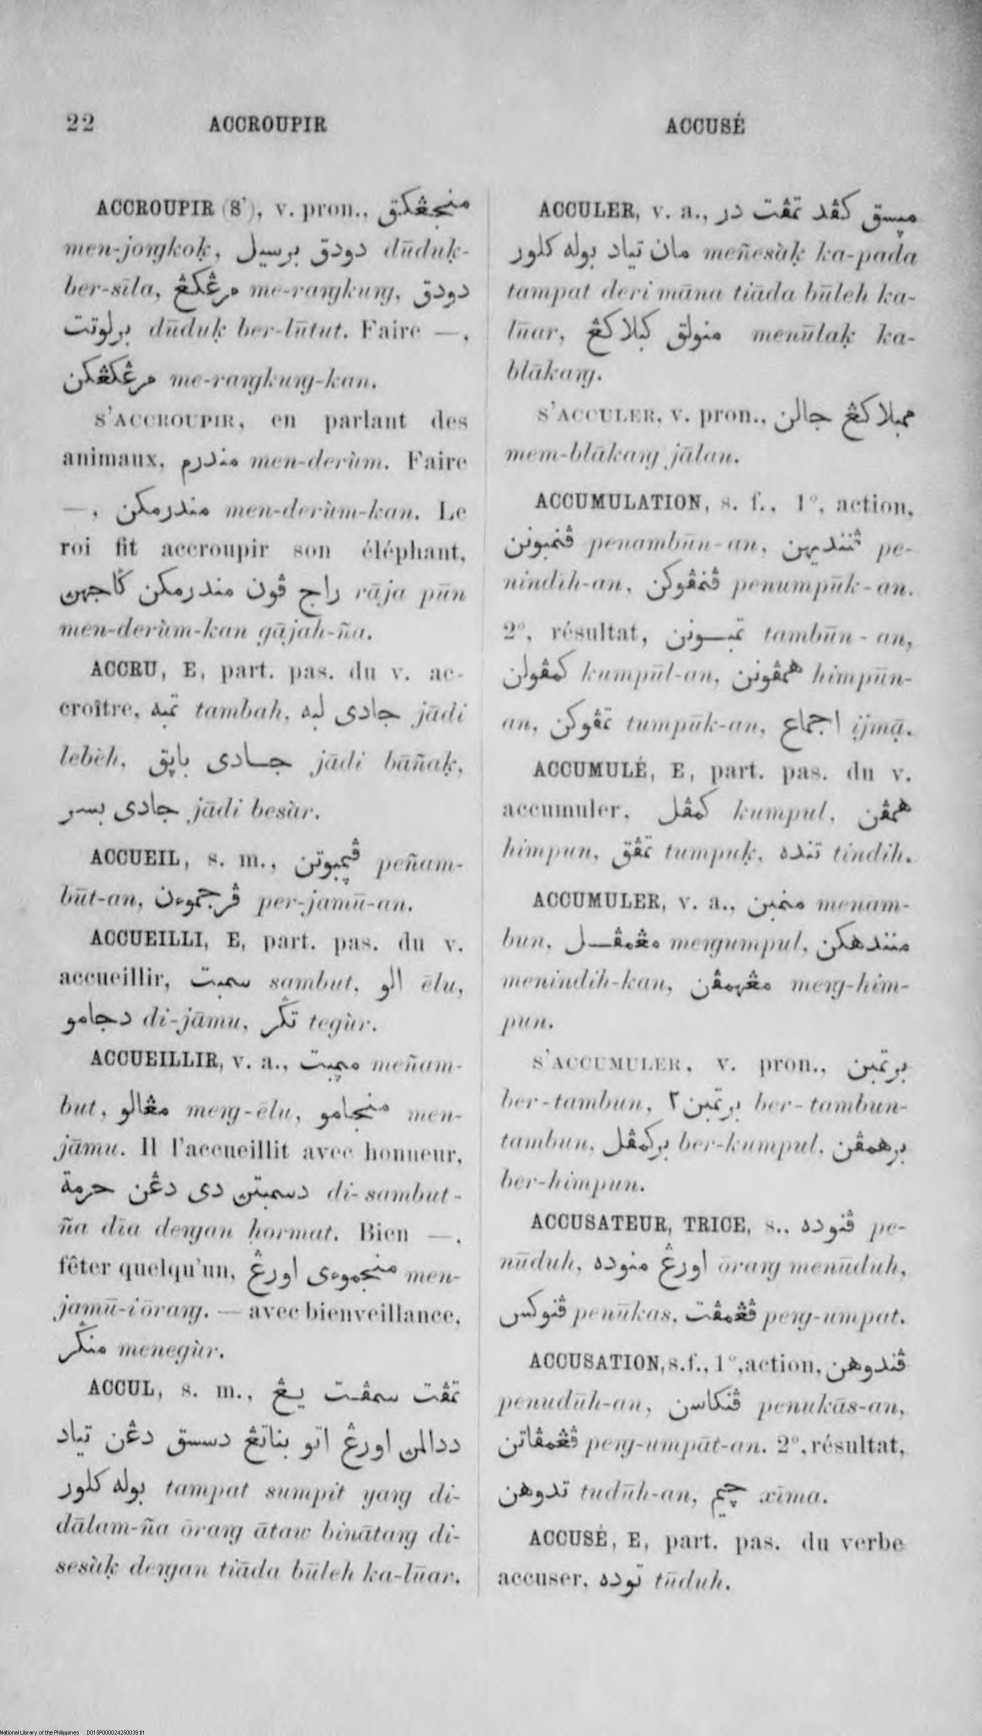 22 ACCROUPIR ACCUSÉ
ACCROUPIR (S'), v. pron., منجڠكق
men-joŋkoḳ, دودق برسيل dūduḳ-
ber-sīla, مرڠكڠ me-raŋkuŋ, دودق
برلوتت dūduḳ ber-lūtut. Faire —,
مرڠكڠكن me-raŋkuŋ-kan.
S'ACCROUPIR, en parlant des
animaux, مندرم men-derùm. Faire
—, مندرمكن men-derùm-kan. Le
roi fit accroupir son éléphant,
راج ڤون مندرمكن ݢاجهن rāja pūn
men-derùm-kan gājah-ña.
ACCRU, E, part. pas. du v. ac-
croître, تمبه tambah, جادى لبه jādi
lebèh, جادى باڽق jādi bāñaḳ,
جادى بسر jādi besàr.
ACCUEIL, s. m., ڤڽمبوتن peñam-
būt-an, ڤرجموءن per-jamū-an.
ACCUEILLI, E, part. pas. du v.
accueillir, سمبت sambut, الو ēlu,
دجامو di-jāmu, تݢر tegùr.
ACCUEILLIR, v. a., مڽمبت meñam-
but, مڠالو meŋ-ēlu, منجامو men-
jāmu. Il l'accueillit avec honneur,
دسمبتن دى دڠن حرمة di-sambut-
ña dīa deŋan ḥormat. Bien —,
fêter quelqu'un, منجموءى اورڠ men-
jamū-i ōraŋ. — avec bienveillance,
منݢر menegùr.
ACCUL, s. m., تمڤت سمڤت يڠ
ددالمن اورڠ اتو بناتڠ دسسق دڠن تياد
بوله كلور tampat sumpit yaŋ di-
dālam-ña ōraŋ ātaw binātaŋ di-
sesàḳ deŋan tiāda būleh ka-lūar.
ACCULER, v. a., مڽسق كڤد تمڤت در
مان تياد بوله كلور meñesàḳ ka-pada
tampat deri māna tiāda būleh ka-
lūar, منولق كبلاكڠ menūlaḳ ka-
blākaŋ.
S'ACCULER, v. pron., ممبلاكڠ جالن
mem-blākaŋ jālan.
ACCUMULATION, s. f., 1°, action,
ڤنمبونن penambūn-an, ڤننديهن pe-
nindīh-an, ڤنمڤوكن penumpūk-an.
2°, résultat, تمبونن tambūn-an,
كمڤولن kumpūl-an, همڤونن himpūn-
an, تمڤوكن tumpūk-an, اجماع ijmạ̄.
ACCUMULÉ, E, part. pas. du v.
accumuler, كمڤل kumpul, همڤن
himpun, تمڤق tumpuḳ, تنده tindih.
ACCUMULER, v. a., منمبن menam-
bun, مڠمڤل meŋumpul, منندهكن
menindih-kan, مڠهمڤن meŋ-him-
pun.
S'ACCUMULER, v. pron., برتمبن
ber-tambun, برتمبن٢ ber-tambun-
tambun, بركمڤل ber-kumpul, برهمڤن
ber-himpun.
ACCUSATEUR, TRICE, s., ڤنوده pe-
nūduh, اورڠ منوده ōraŋ menūduh,
ڤنوكس penūkas, ڤڠمڤت peŋ-umpat.
ACCUSATION, s. f., 1°, action, ڤندوهن
penudūh-an, ڤنكاسن penukās-an,
ڤڠمڤاتن peŋ-umpāt-an. 2°, résultat,
تدوهن tudūh-an, چيم xīma.
ACCUSÉ, E, part. pas. du verbe
accuser, توده tūduh.
National Library of the Philippines